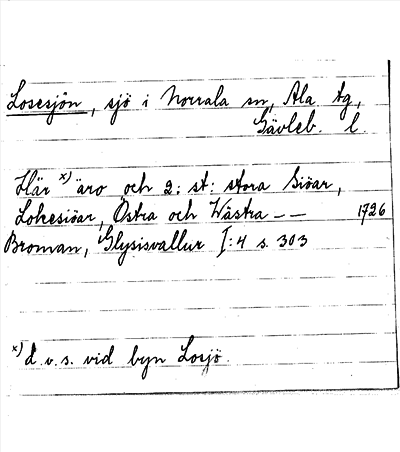 Losesjön, sjö i Norrala sn, Ala tg,
Gävleb. l.
Här x) äro och 2: st: stora Siöar,
Losesiöar, Östra och Wästra — — 1726
Broman, Glysisvallur I:4 s. 303
x) d. v. s. vid byn Losjö.